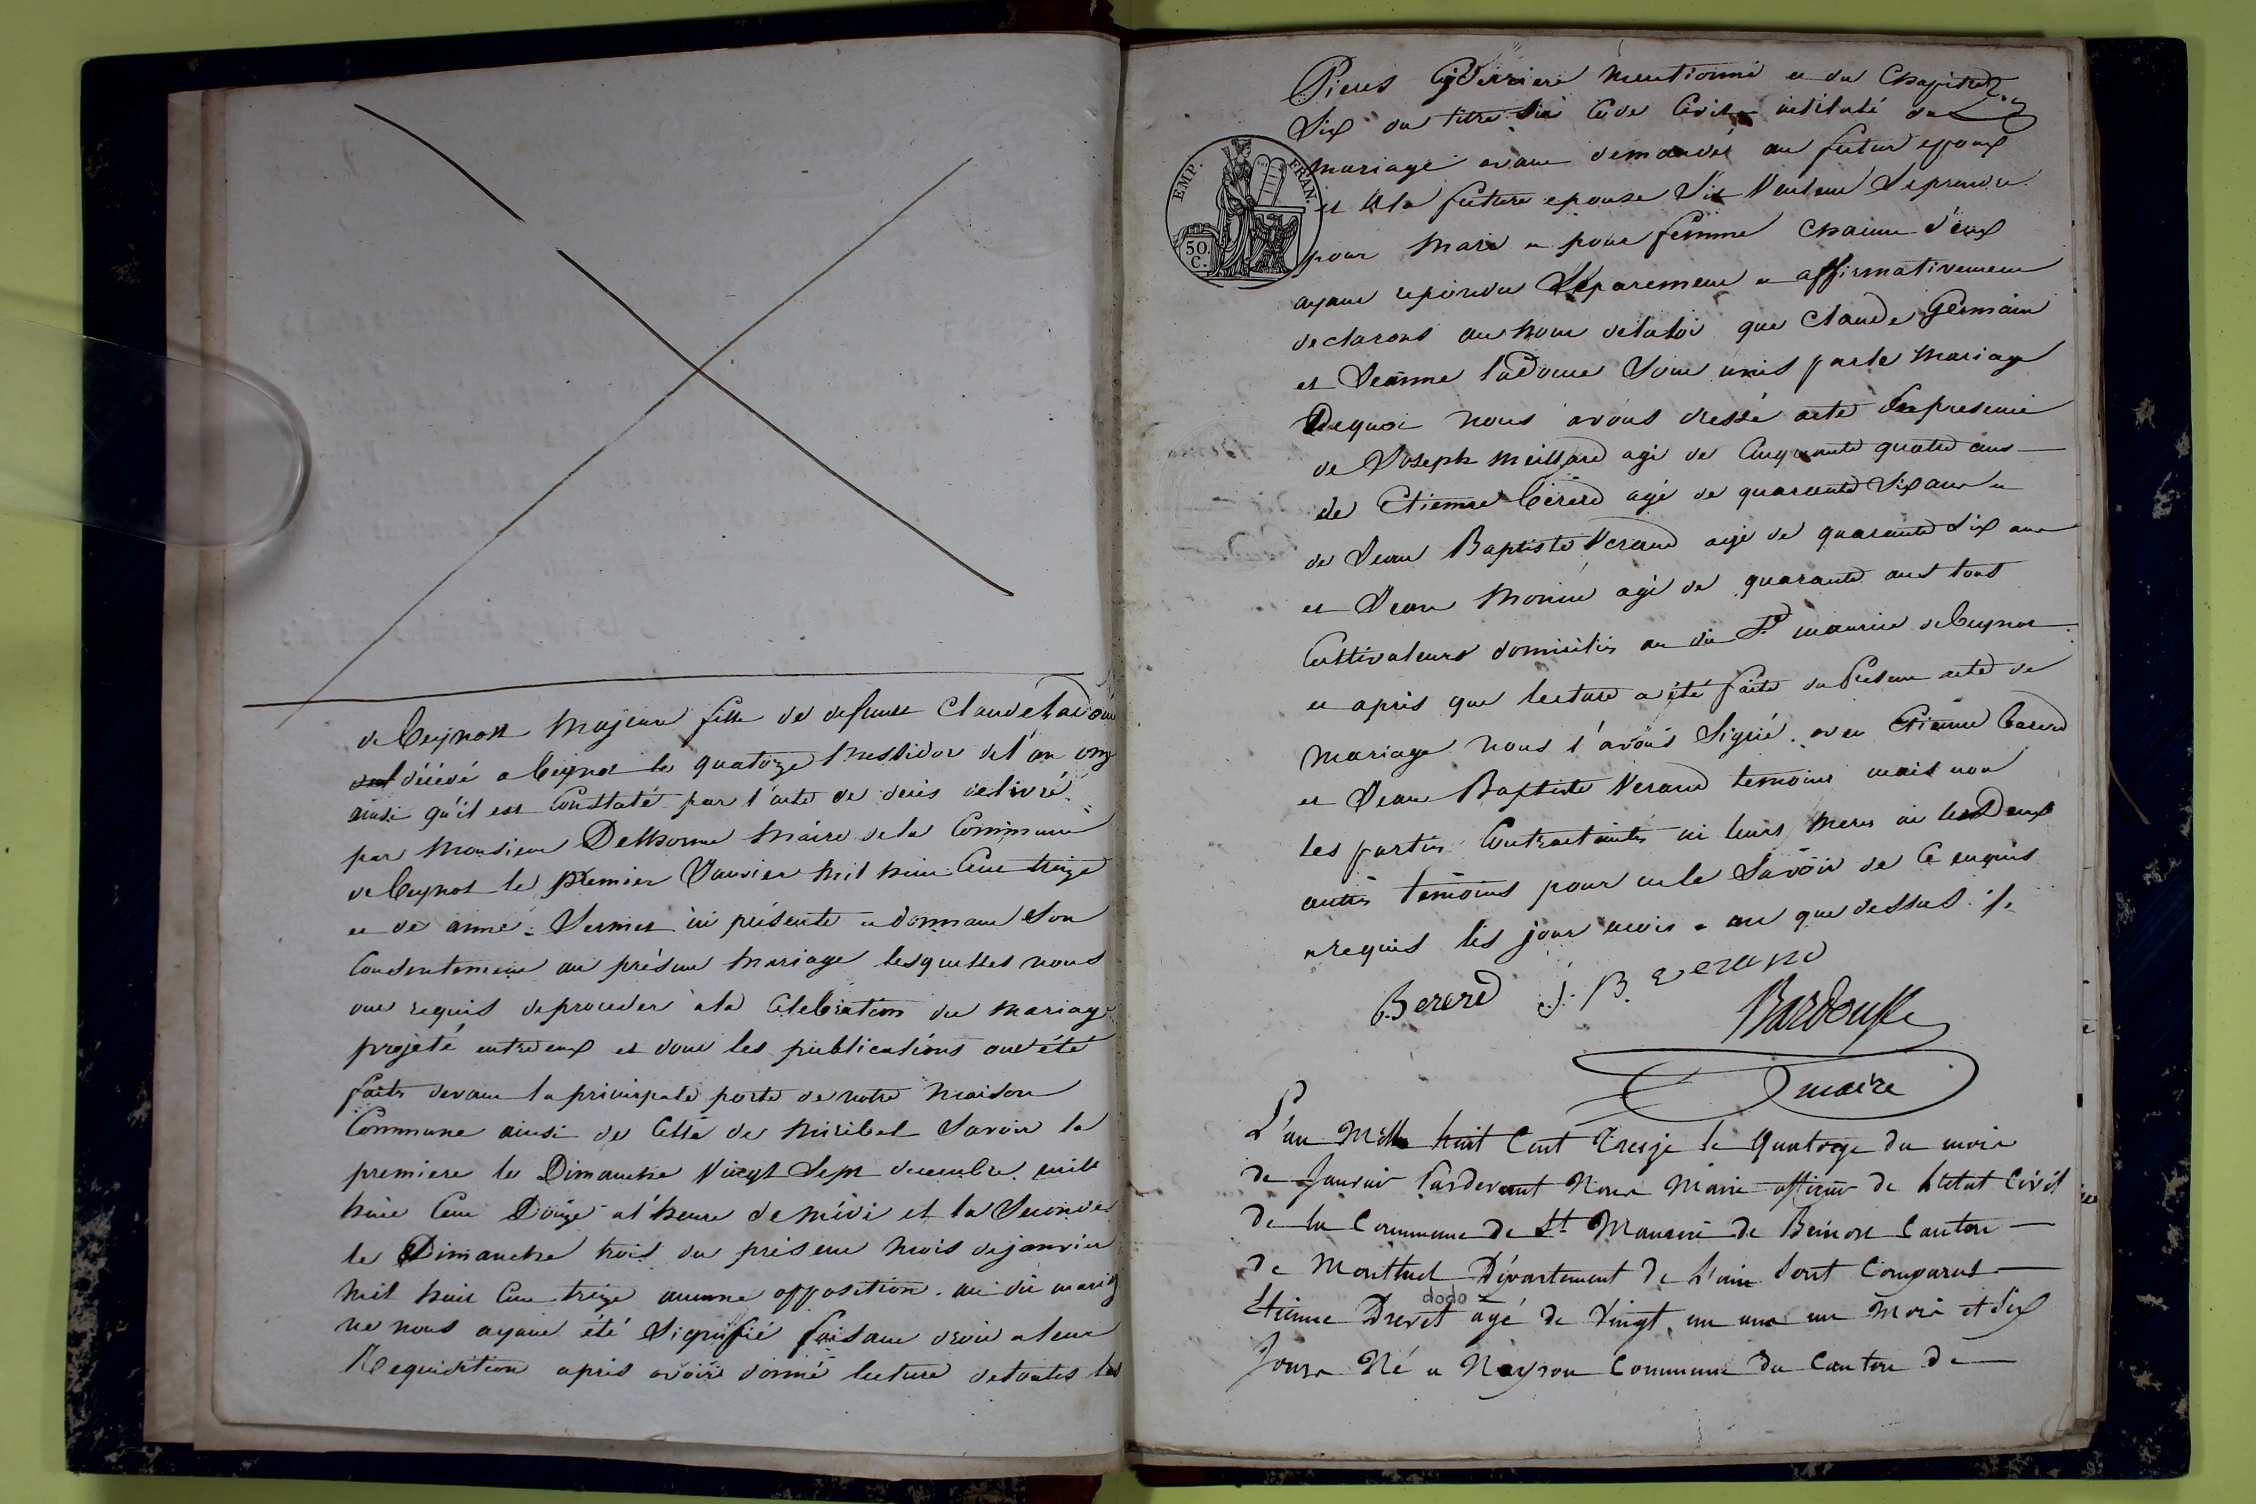 de Beynost majeure fille de defunct Claude Ladouce
décédé a Beynost le quatorze messidor de l'an onze
ainsi qu'il est Constaté par l'acte de décès délivré
par Monsieur Delhorme Maire de la Commune
de Beynost le premier Janvier mil huit Cent treize
et de anne Vernet ici présente et donnant son
Consentement au présent mariage lesquelles nous
ont requis de proceder à la Celebration du mariage
projeté entre eux et dont les publications ont été
faites devant la principale porte de notre maison
Commune ainsi de Celle de Miribel Savoir la
premiere le Dimanche Vingt Sept decembre mil
huit Cent Douze a l'heure de midi et la Seconde
le Dimanche trois du présent mois de janvier
mil huit Cent treize aucune opposition au dit mariage
ne nous ayant été Signifié faisant droit a leur
Requisition après avoir donné lecture de toutes les
Pieces Cy derriere mentionné et du Chapitre
Six du titre du Code Civil intitulé du
mariage avons demandés au futur epoux
et a la future epouse S'ils Veulent Se prendre
pour mari et pour femme Chacun d'eux
ayant repondu Separement et affirmativement
declarons au nom de la loi que Claude Germain
et Jeanne Ladouce Sont unis par le mariage
De quoi nous avons dressé acte en presence
de Joseph Meillard agé de Cinquante quatre ans
de Etienne Bererd agé de quarante Six ans et
de Jean Baptiste Verand agé de quarante Six ans
et Jean Monin agé de quarante ans tous
Cultivateurs domicilies au dit St maurice de Beynost
et après que lecture a été faite du Présent acte de
mariage nous l'avons Signé avec Etienne Bererd
et Jean Baptiste Verand temoins mais non
les parties Contractantes ni leurs meres ni les Deux
autres temoins pour ne le Savoir de Ce enquis
et requis les jour mois et an que dessus
EMP. FRAN.
50. C.
Bererd J. B. verand
Bardousse
maire
L'an Mille huit Cent Treize le Quatorze du mois
de Janvier Pardevant Nous Maire officier de l'état Civil
de la Commune de St Maurice de Beinost Canton
de Montluel Département de L'ain Sont Comparus
dodo
Etienne Drevet agé de Vingt un ans un Mois et Six
Jours Né a Neyron Commune du Canton de